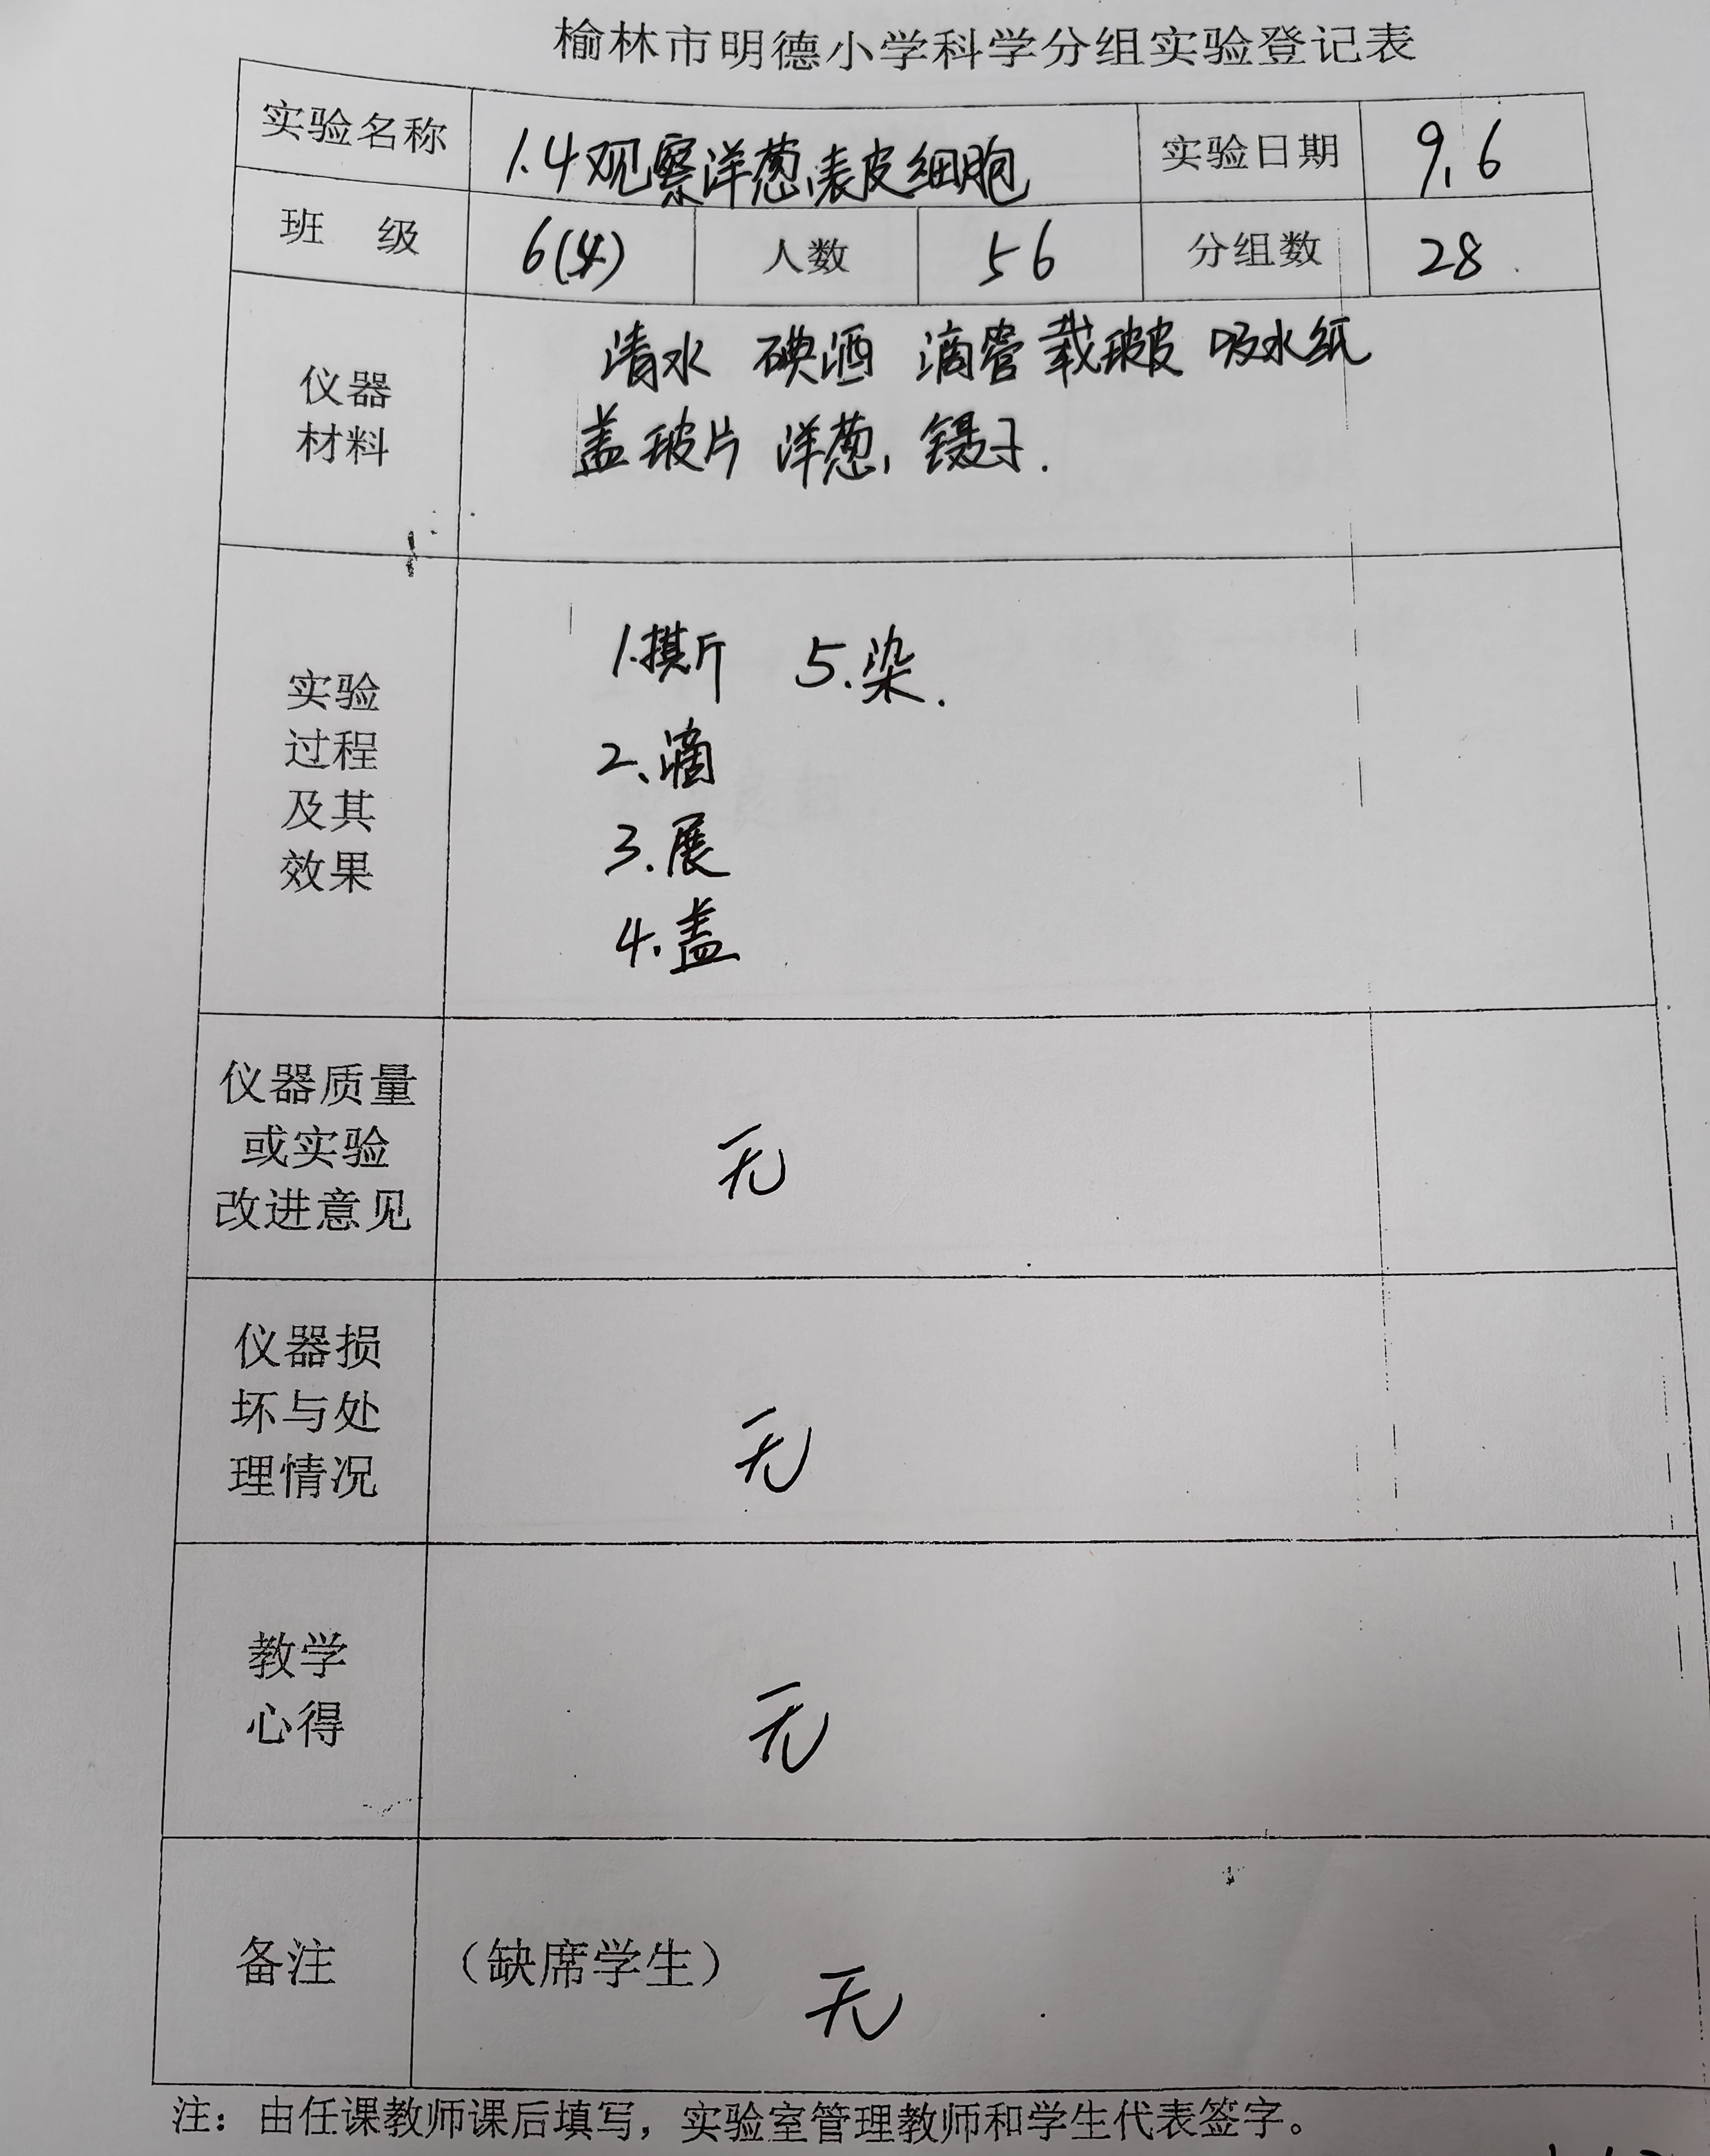 榆林市明德小学科学分组实验登记表
实验名称 1.4观察洋葱表皮细胞 实验日期 9.6
班 级 6(4) 人数 56 分组数 28
仪器
材料
清水 碘酒 滴管 载玻 吸水纸
盖玻片 洋葱 镊子.
实验
过程
及其
效果
1.撕 5.染.
2.滴
3.展
4.盖
仪器质量
或实验
改进意见
无
仪器损
坏与处
理情况
无
教学
心得
无
备注
(缺席学生) 无
注：由任课教师课后填写，实验室管理教师和学生代表签字。